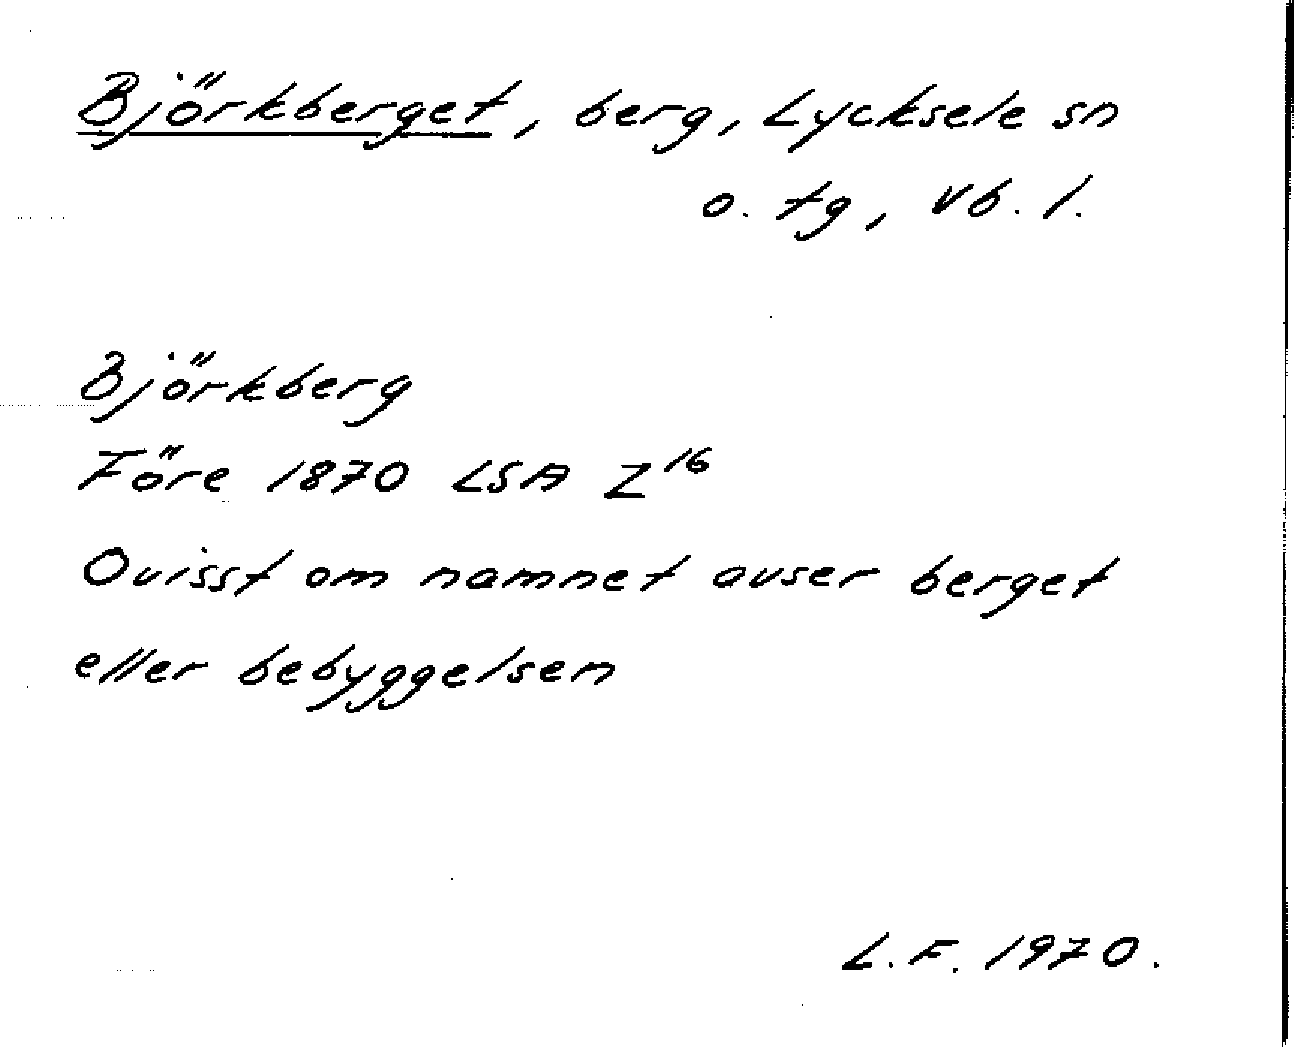 Björkberget, berg, Lycksele sn
o. tg, Vb. l.
Björkberg
Före 1870 LSA Z¹⁶
Ovisst om namnet avser berget
eller bebyggelsen
L.F. 1970.